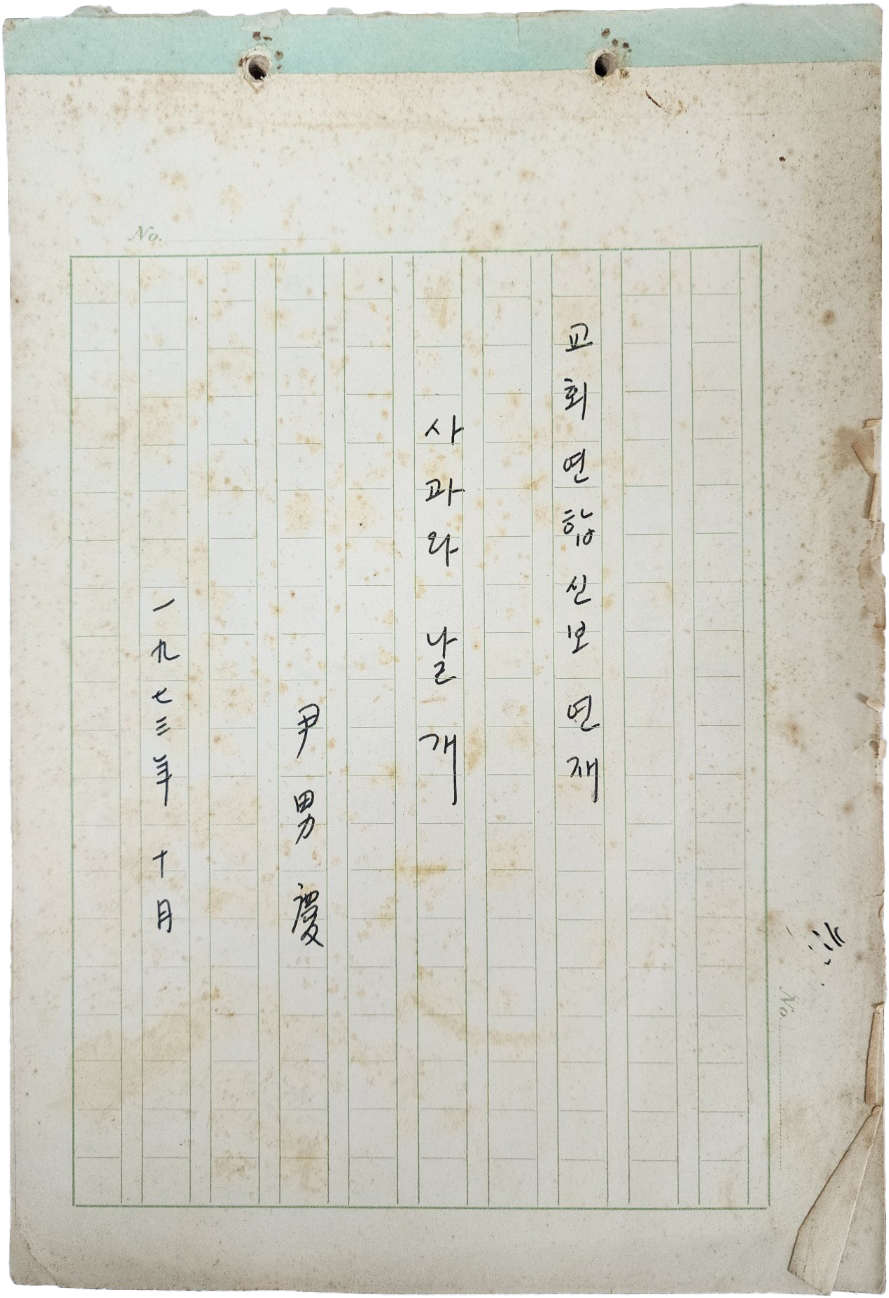 No.
교회연합신보 연재
사과와 날개
尹男慶
一九七三年 十月
No.